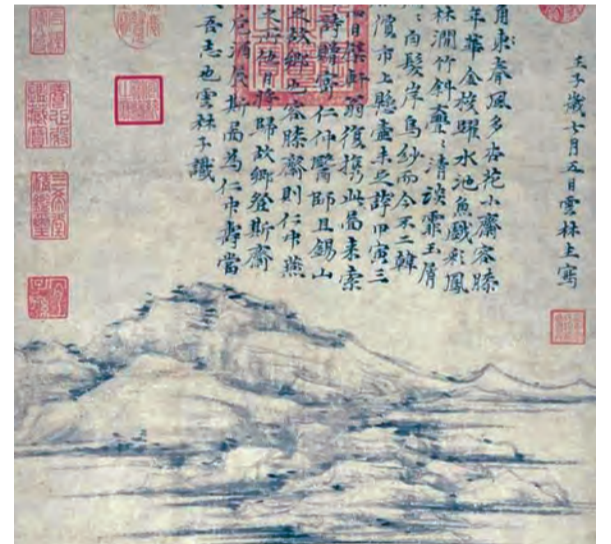 壬子歲七月五日雲林生寫
角東春風多杏花小齋容膝
年華金梭躍水池魚戲彩鳳
林澗竹斜亹々清談霏玉屑
々白髮岸烏紗而今不二韓
價市上懸壺未足誇甲寅三
四日檗軒翁復攜此圖來索
詩贈寄仁仲醫師且錫山
之故鄉也容膝齋則仁仲燕
之所他日將歸故鄉登斯齋
卮酒展斯圖為仁仲壽當
吾志也雲林子識